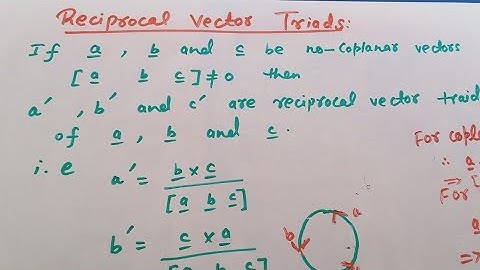 Reciprocal Vector Triads:
If a, b and c be no-coplanar vectors
[a b c]≠0 then
a', b' and c' are reciprocal vector traid
of a, b and c.
i.e a' = b×c / [a b c]
b' = c×a / [a b c]
a
b
For copla
∴ a
⇒ [
For
a
⇒